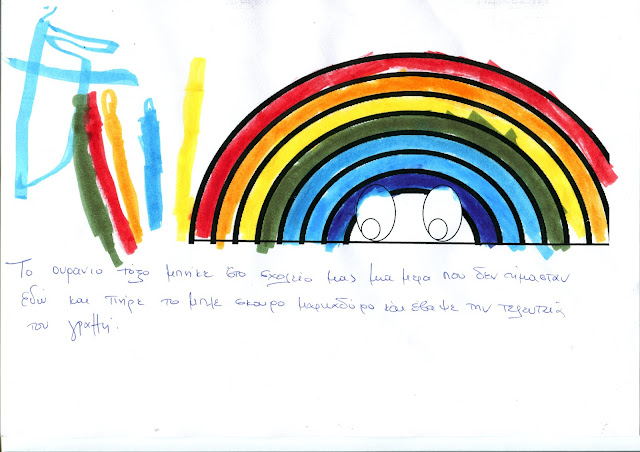 Το ουράνιο τόξο μπήκε στο σχολείο μας μια μέρα που δεν είμασταν
εδώ και πήρε το μπλε σκούρο μαρκαδόρο και έβαψε την τελευταία
του γραμμή.